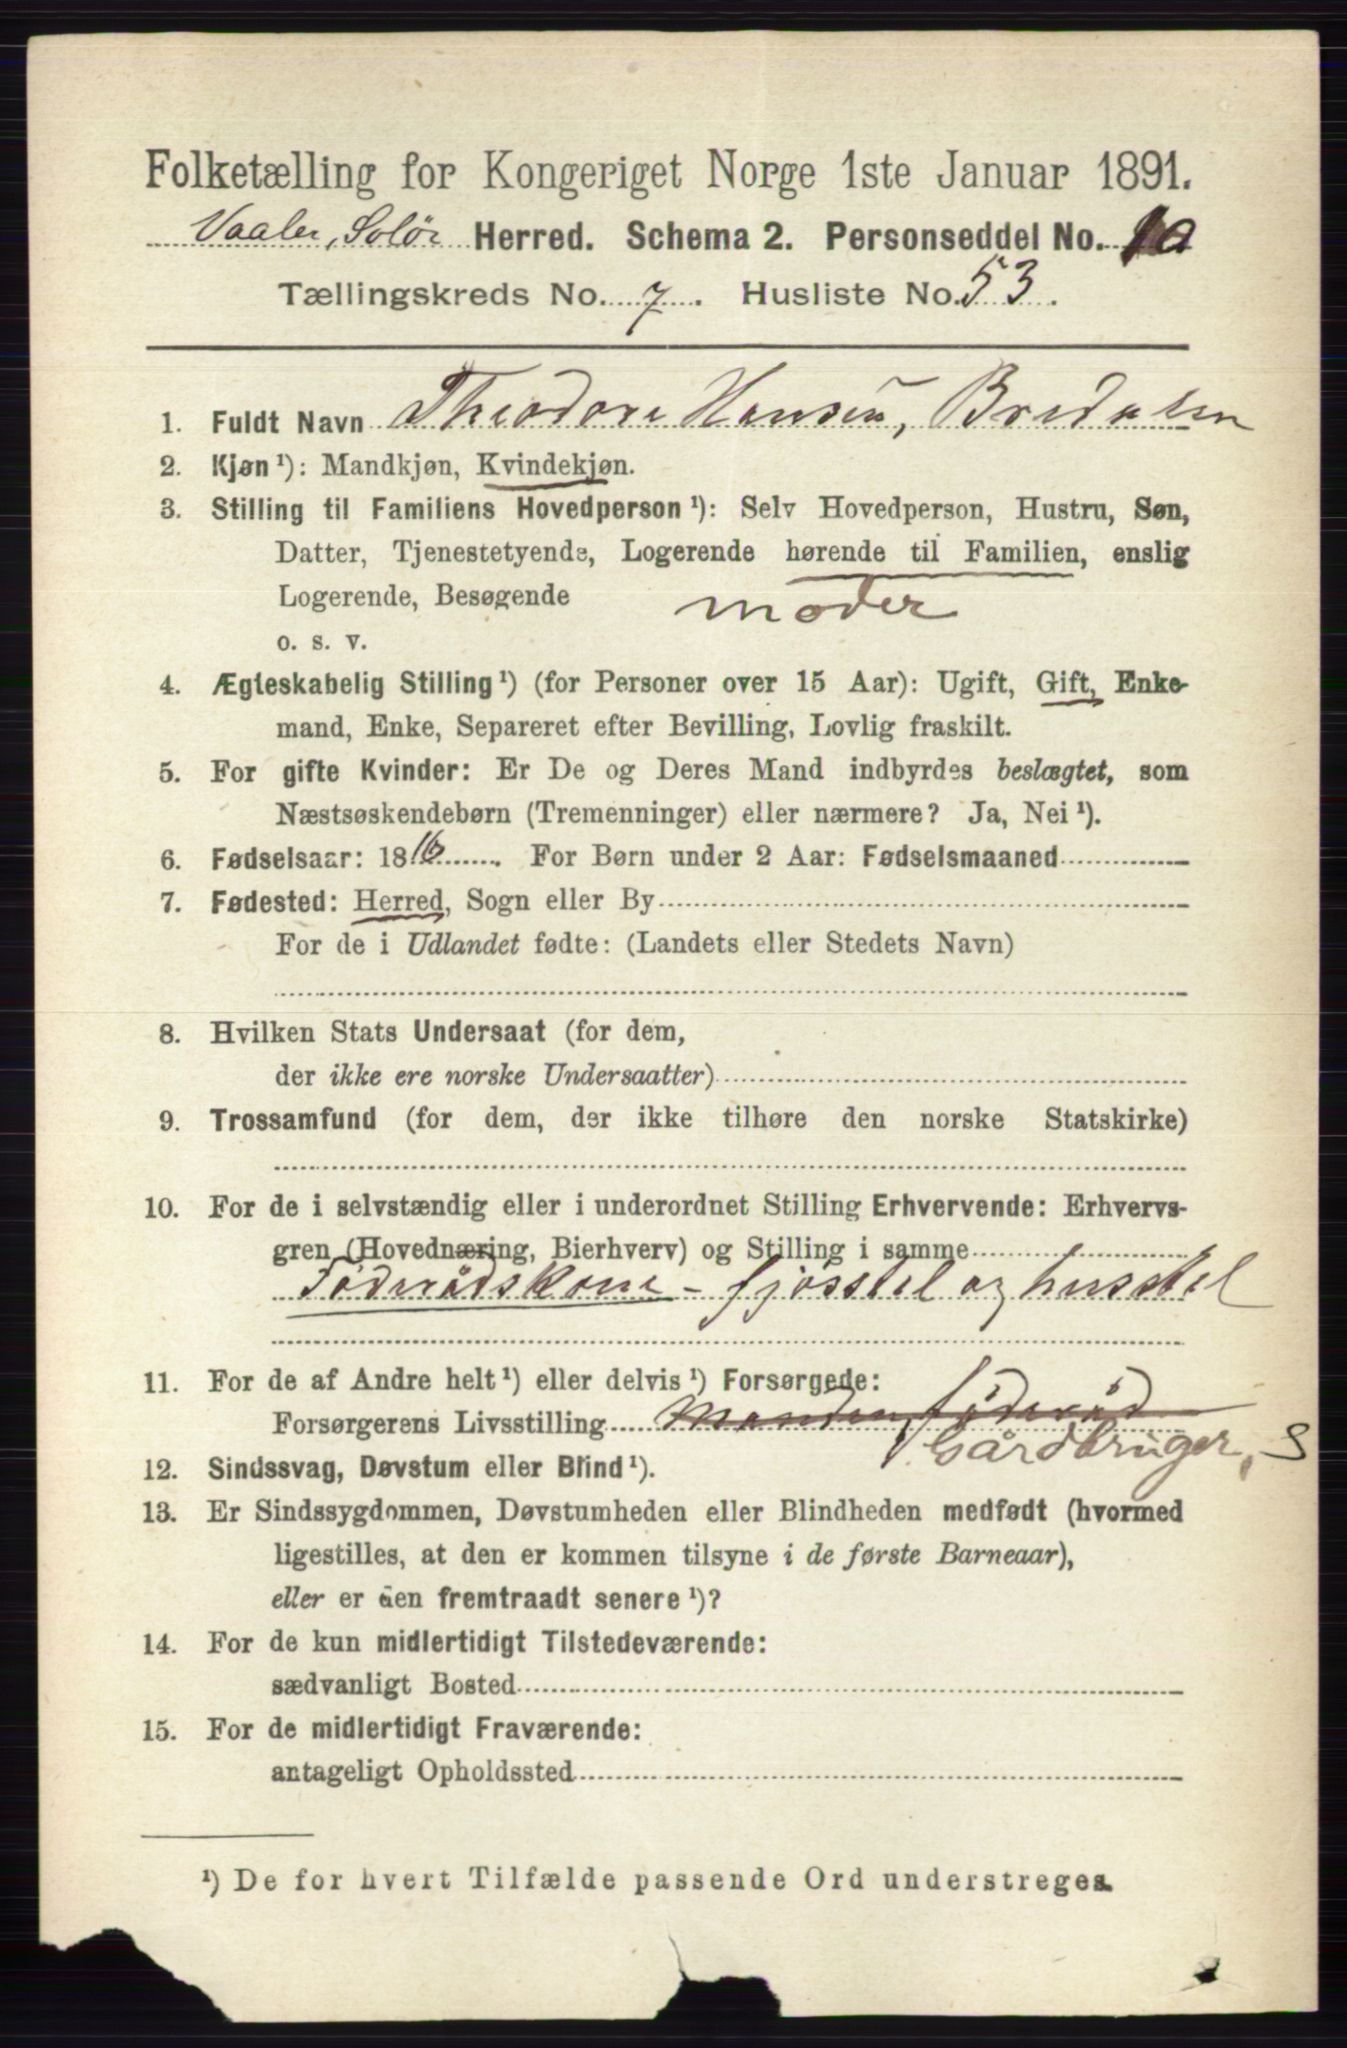 Folketælling for Kongeriget Norge 1ste Januar 1891.
Vaaler, Solör Herred. Schema 2. Personseddel No. 10
Tællingskreds No. 7. Husliste No. 53.
1. Fuldt Navn Theodora Hansen, Bredalen
2. Kjøn ¹): Mandkjøn, Kvindekjøn.
3. Stilling til Familiens Hovedperson ¹): Selv Hovedperson, Hustru, Søn,
Datter, Tjenestetyende, Logerende hørende til Familien, enslig
Logerende, Besøgende moder
o. s. v.
4. Ægteskabelig Stilling ¹) (for Personer over 15 Aar): Ugift, Gift, Enke-
mand, Enke, Separeret efter Bevilling, Lovlig fraskilt.
5. For gifte Kvinder: Er De og Deres Mand indbyrdes beslægtet, som
Næstsøskendebørn (Tremenninger) eller nærmere? Ja, Nei ¹).
6. Fødselsaar: 1816. For Børn under 2 Aar: Fødselsmaaned
7. Fødested: Herred, Sogn eller By
For de i Udlandet fødte: (Landets eller Stedets Navn)
8. Hvilken Stats Undersaat (for dem,
der ikke ere norske Undersaatter)
9. Trossamfund (for dem, der ikke tilhøre den norske Statskirke)
10. For de i selvstændig eller i underordnet Stilling Erhvervende: Erhvervs-
gren (Hovednæring, Bierhverv) og Stilling i samme
Föderådskone - fjösstel og husstel
11. For de af Andre helt ¹) eller delvis ¹) Forsørgede:
Forsørgerens Livsstilling Manden, föderåd
Gårdbruger, S
12. Sindssvag, Døvstum eller Blind ¹).
13. Er Sindssygdommen, Døvstumheden eller Blindheden medfødt (hvormed
ligestilles, at den er kommen tilsyne i de første Barneaar),
eller er den fremtraadt senere ¹)?
14. For de kun midlertidigt Tilstedeværende:
sædvanligt Bosted
15. For de midlertidigt Fraværende:
antageligt Opholdssted
¹) De for hvert Tilfælde passende Ord understreges.